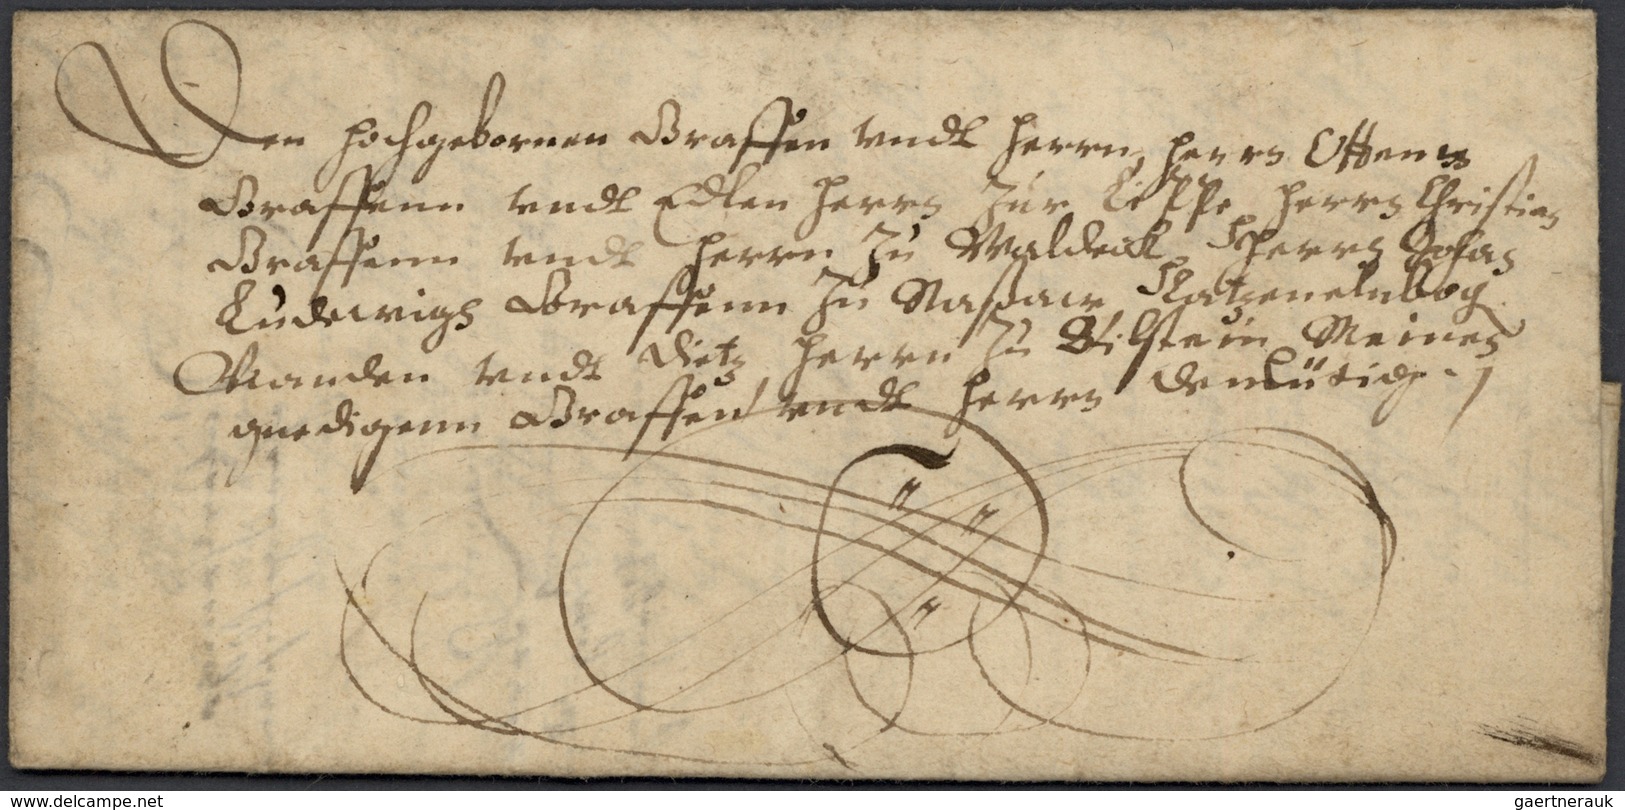 Den Hochgebornen Graffen vndt Herrn, Herrn Otten
Graffenn vndt Edlen Herrn Zur Lippe, Herrn Christian
Graffenn vndt Herrn Zu Waldeck, Herrn Johan
Ludewigh Graffenn Zu Naßaw Katzenelnbog
Vianden vndt Dietz, Herrn Zu Bilstein Meinen
gnedigenn Graffen vndt Herrn Demütig
www.delcampe.net
gaertnerauk